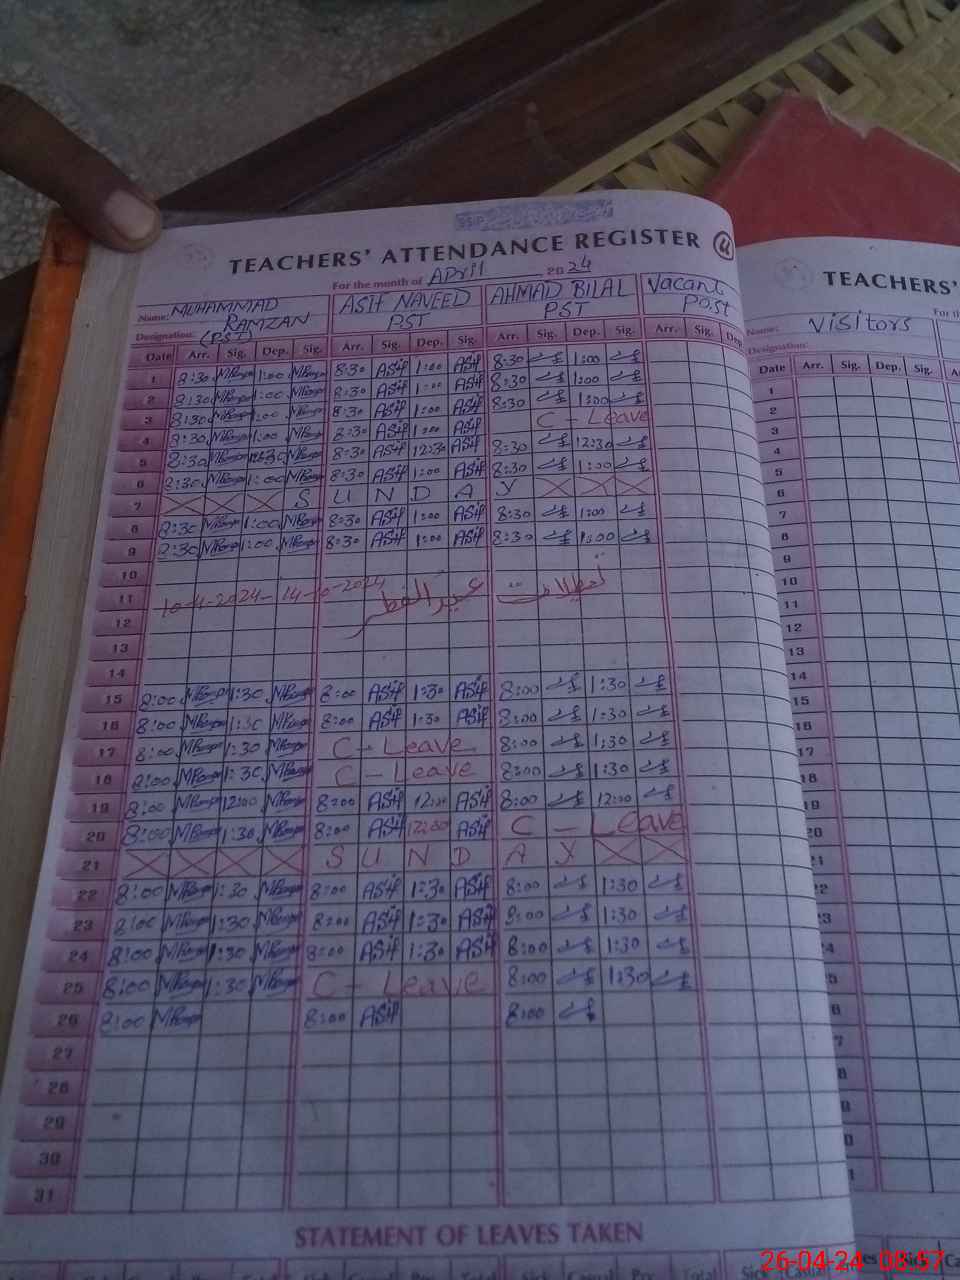 TEACHERS' ATTENDANCE REGISTER 4
For the month of April 2024
Name: MUHAMMAD RAMZAN ASIF NAVEED AHMAD BILAL Vacant Post
Designation: (PST) PST PST
Date Arr. Sig. Dep. Sig. Arr. Sig. Dep. Sig. Arr. Sig. Dep. Sig. Arr. Sig. Dep
1 8:30 1:00 8:30 ASif 1:00 ASif 8:30 1:00
2 8:30 1:00 8:30 ASif 1:00 ASif 8:30 1:00
3 8:30 1:00 8:30 ASif 1:00 ASif 8:30 1:00
4 8:30 1:00 8:30 ASif 1:00 ASif C - Leave
5 8:30 12:30 8:30 ASif 12:30 ASif 8:30 12:30
6 8:30 1:00 8:30 ASif 1:00 ASif 8:30 1:00
7 S U N D A Y
8 8:30 1:00 8:30 ASif 1:00 ASif 8:30 1:00
9 8:30 1:00 8:30 ASif 1:00 ASif 8:30 1:00
10
11 تعطیلات عید الفطر
12
13
14
15 8:00 1:30 8:00 ASif 1:30 ASif 8:00 1:30
16 8:00 1:30 8:00 ASif 1:30 ASif 8:00 1:30
17 8:00 1:30 C - Leave 8:00 1:30
18 8:00 1:30 C - Leave 8:00 1:30
19 8:00 12:00 8:00 ASif 12:00 ASif 8:00 12:00
20 8:00 1:30 8:00 ASif 12:00 ASif C - Leave
21 S U N D A Y
22 8:00 1:30 8:00 ASif 1:30 ASif 8:00 1:30
23 8:00 1:30 8:00 ASif 1:30 ASif 8:00 1:30
24 8:00 1:30 8:00 ASif 1:30 ASif 8:00 1:30
25 8:00 1:30 C - Leave 8:00 1:30
26 8:00 8:00 ASif 8:00
27
28
29
30
31
STATEMENT OF LEAVES TAKEN
TEACHERS'
For th
Name: Visitors
Designation:
Date Arr. Sig. Dep. Sig.
1
2
3
4
5
6
7
8
9
10
11
12
13
14
15
16
17
18
19
20
26-04-24 08:57